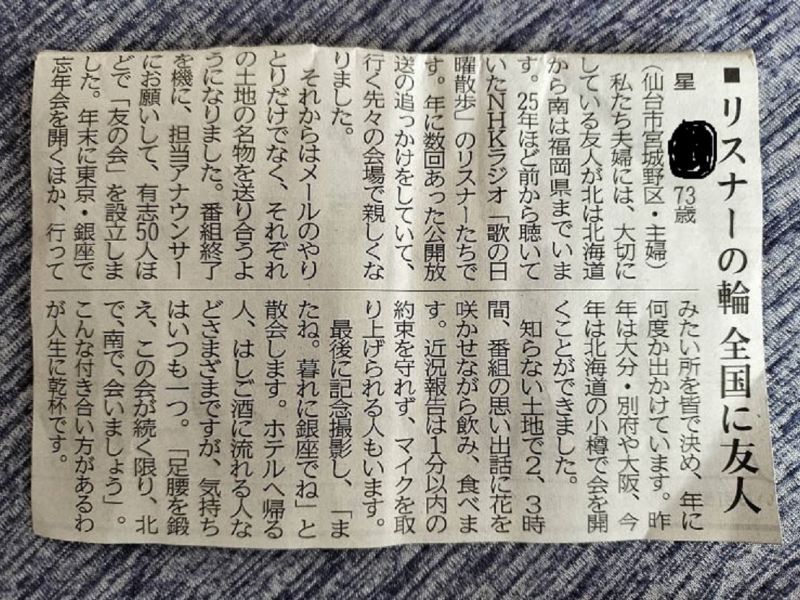 ■リスナーの輪 全国に友人
星
73歳
(仙台市宮城野区・主婦)
私たち夫婦には、大切に
している友人が北は北海道
から南は福岡県までいま
す。25年ほど前から聴いて
いたNHKラジオ「歌の日
曜散歩」のリスナーたちで
す。年に数回あった公開放
送の追っかけをしていて、
行く先々の会場で親しくな
りました。
それからはメールのやり
とりだけでなく、それぞれ
の土地の名物を送り合うよ
うになりました。番組終了
を機に、担当アナウンサー
にお願いして、有志50人ほ
どで「友の会」を設立しま
した。年末に東京・銀座で
忘年会を開くほか、行って
みたい所を皆で決め、年に
何度か出かけています。昨
年は大分・別府や大阪、今
年は北海道の小樽で会を開
くことができました。
知らない土地で2、3時
間、番組の思い出話に花を
咲かせながら飲み、食べま
す。近況報告は1分以内の
約束を守れず、マイクを取
り上げられる人もいます。
最後に記念撮影し、「ま
たね。暮れに銀座でね」と
散会します。ホテルへ帰る
人、はしご酒に流れる人な
どさまざまですが、気持ち
はいつも一つ。「足腰を鍛
え、この会が続く限り、北
で、南で、会いましょう」。
こんな付き合い方があるわ
が人生に乾杯です。